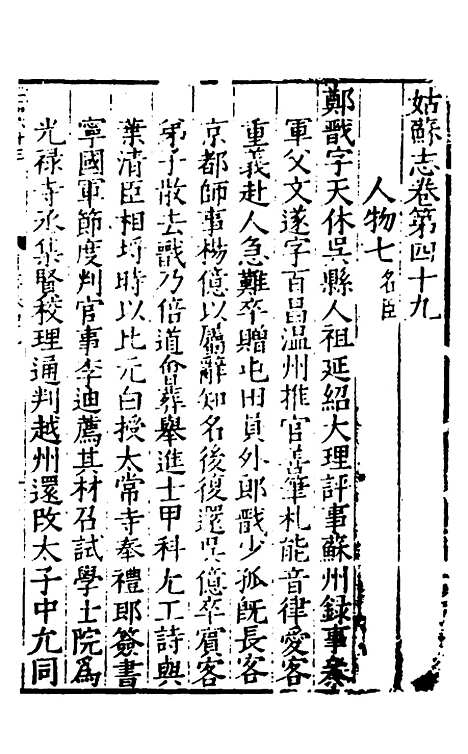 姑蘇志卷第四十九
人物七名臣
鄭戬字天休吳縣人祖延紹大理評事蘇州録事叅
軍父文遂字百昌温州推官善筆札能音律愛客
重義赴人急難卒贈屯田員外郎戬少孤旣長客
京都師事楊億以屬辭知名後復還吳億卒賓客
弟子散去戬乃倍道會葬舉進士甲科尤工詩與
葉清臣相埒時以比元白授太常寺奉禮郎簽書
寧國軍節度判官事李迪薦其材召試學士院爲
光禄寺丞集賢校理通判越州還改太子中允同